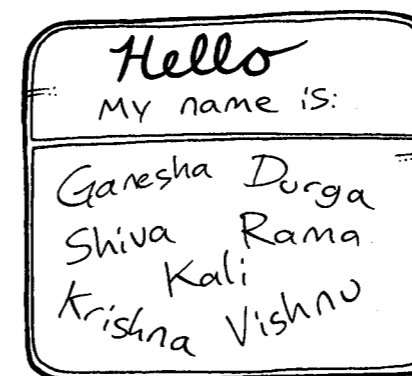 Hello
My name is:
Ganesha Durga
Shiva Rama
Kali
Krishna Vishnu